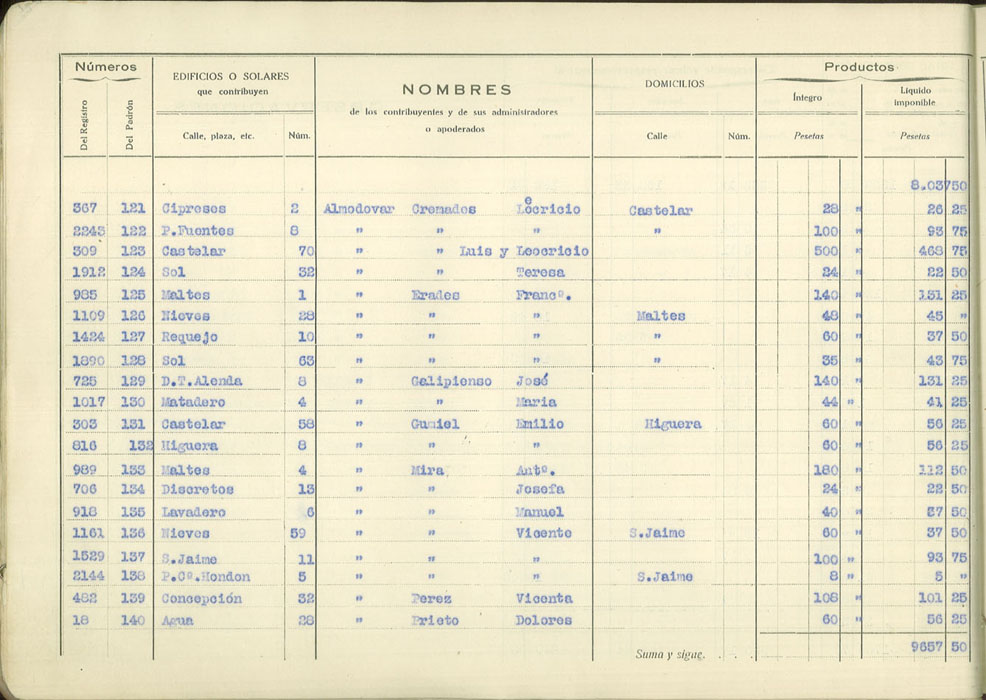 Números EDIFICIOS O SOLARES que contribuyen NOMBRES de los contribuyentes y de sus administradores o apoderados DOMICILIOS Productos
Del Registro Del Padrón Calle, plaza, etc. Núm. Calle Núm. Íntegro Pesetas Líquido imponible Pesetas
8.037 50
367 121 Cipreses 2 Almodovar Cremades Leocricio Castelar 28 " 26 25
2243 122 P.Fuentes 8 " " " " 100 " 93 75
309 123 Castelar 70 " " Luis y Leocricio 500 " 468 75
1912 124 Sol 32 " " Teresa 24 " 22 50
985 125 Maltes 1 " Erades Francº. 140 " 131 25
1109 126 Nieves 28 " " " Maltes 48 " 45 "
1424 127 Requejo 10 " " " " 60 " 37 50
1890 128 Sol 63 " " " " 35 " 43 75
725 129 D.T.Alenda 8 " Galipienso José 140 " 131 25
1017 130 Matadero 4 " " Maria 44 " 41 25
303 131 Castelar 58 " Gumiel Emilio Higuera 60 " 56 25
816 132 Higuera 8 " " " 60 " 56 25
989 133 Maltes 4 " Mira Antº. 180 " 112 50
706 134 Discretos 13 " " Josefa 24 " 22 50
918 135 Lavadero 6 " " Manuel 40 " 37 50
1161 136 Nieves 59 " " Vicente S.Jaime 60 " 37 50
1529 137 S.Jaime 11 " " " 100 " 93 75
2144 138 P.Cº.Hondon 5 " " " S.Jaime 8 " 5 "
482 139 Concepción 32 " Perez Vicenta 108 " 101 25
18 140 Agua 28 " Prieto Dolores 60 " 56 25
Suma y sigue. 9657 50